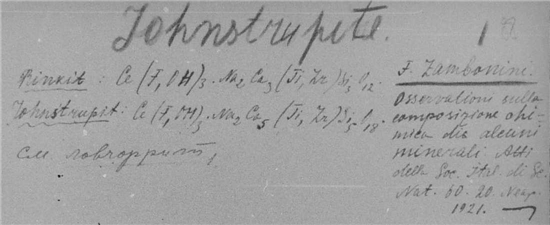 Johnstrupite.
Rinkit: Ce (F, OH)3. Na2 Ca3 (Ti, Zr) Si3 O12.
Johnstrupit: Ce (F, OH)3. Na2 Ca5 (Ti, Zr) Si5 O18.
см. ловчоррит,
F. Zambonini.
Osservazioni sulla
composizione chi-
mica di alcuni
minerali Atti
della Soc. Ital. di Sc.
Nat. 60. 20.
1921.